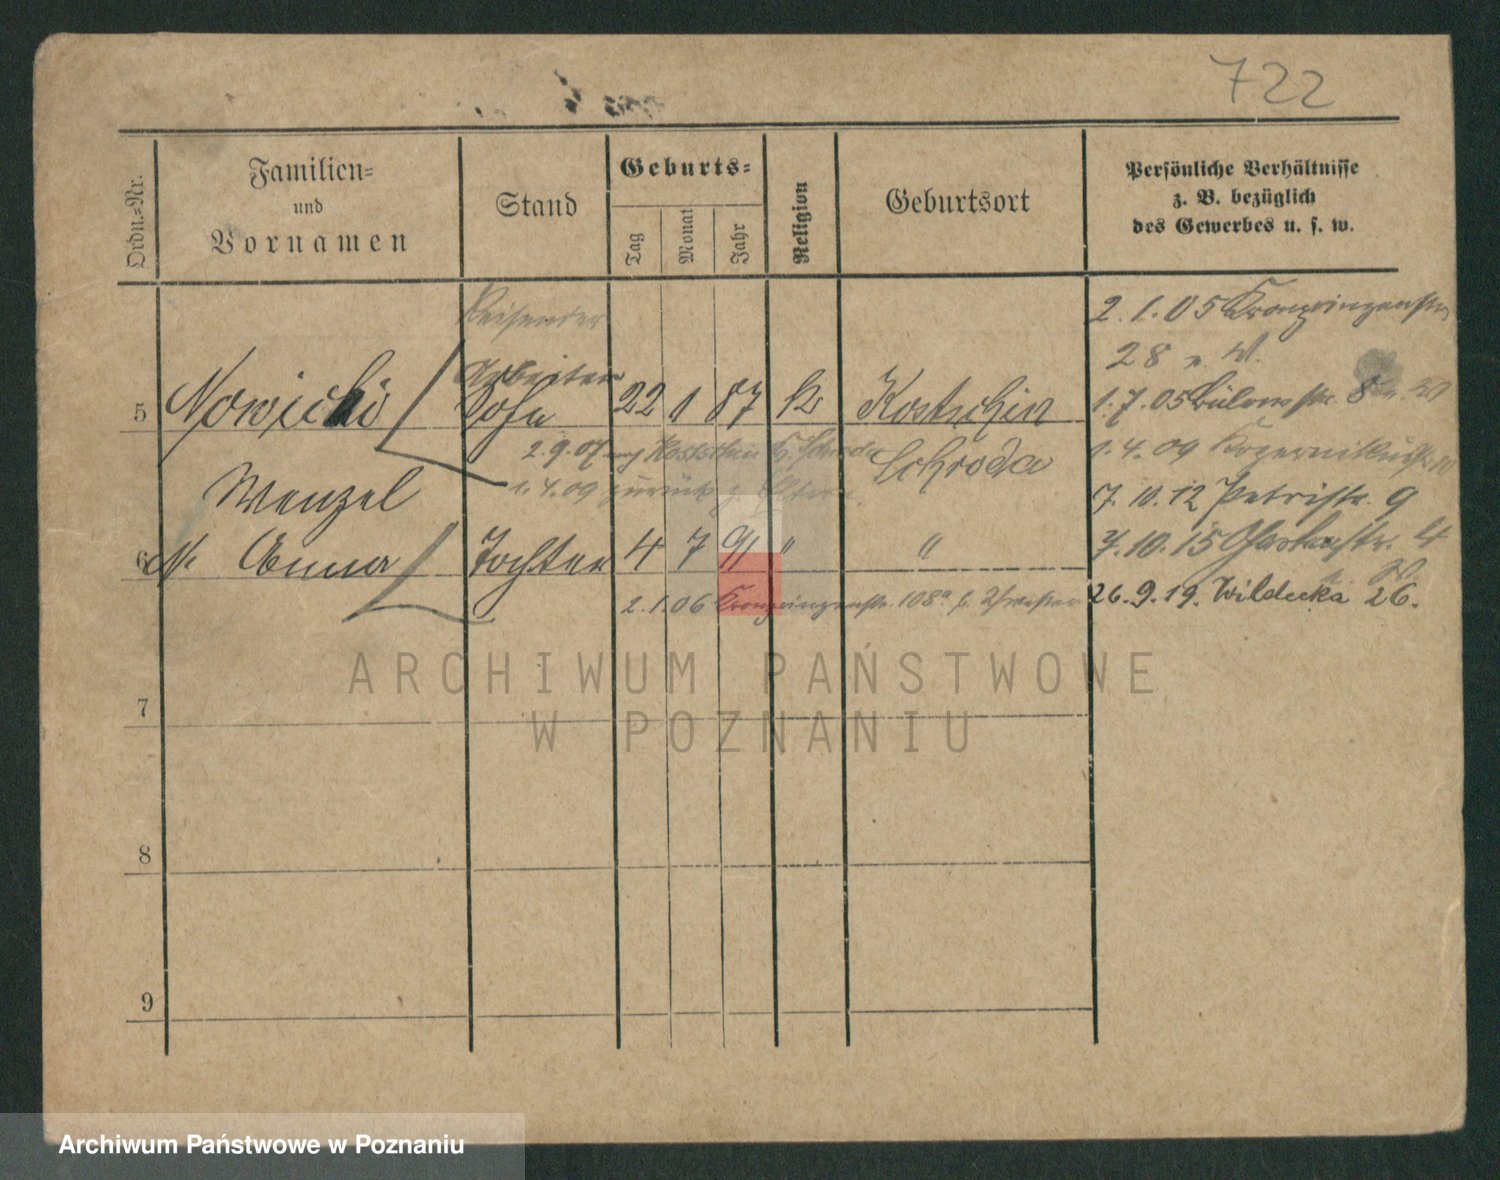 722
Ordn.-Nr.
Familien-
und
Vornamen
Stand
Geburts-
Tag
Monat
Jahr
Religion
Geburtsort
Persönliche Verhältnisse
z. B. bezüglich
des Gewerbes u. s. w.
Reisender
2. 1. 05 Kronprinzenstr.
28 W.
Arbeiter
5 Nowicki Sohn 22 1 87 k Kostschin
1. 7. 05 Bülowstr. 8
2. 9. 07 Kostschin Schroda
Schroda
1. 4. 09
Wenzel
1. 4. 09 zurück z. Eltern.
7. 10. 12 Petristr. 9
6 N. Anna Tochter 4 7 91 " "
7. 10. 15 4
W.
2. 1. 06 Kronprinzenstr. 108a b.
26. 9. 19. Wildecka 26.
7
8
9
ARCHIWUM PAŃSTWOWE
W POZNANIU
Archiwum Państwowe w Poznaniu